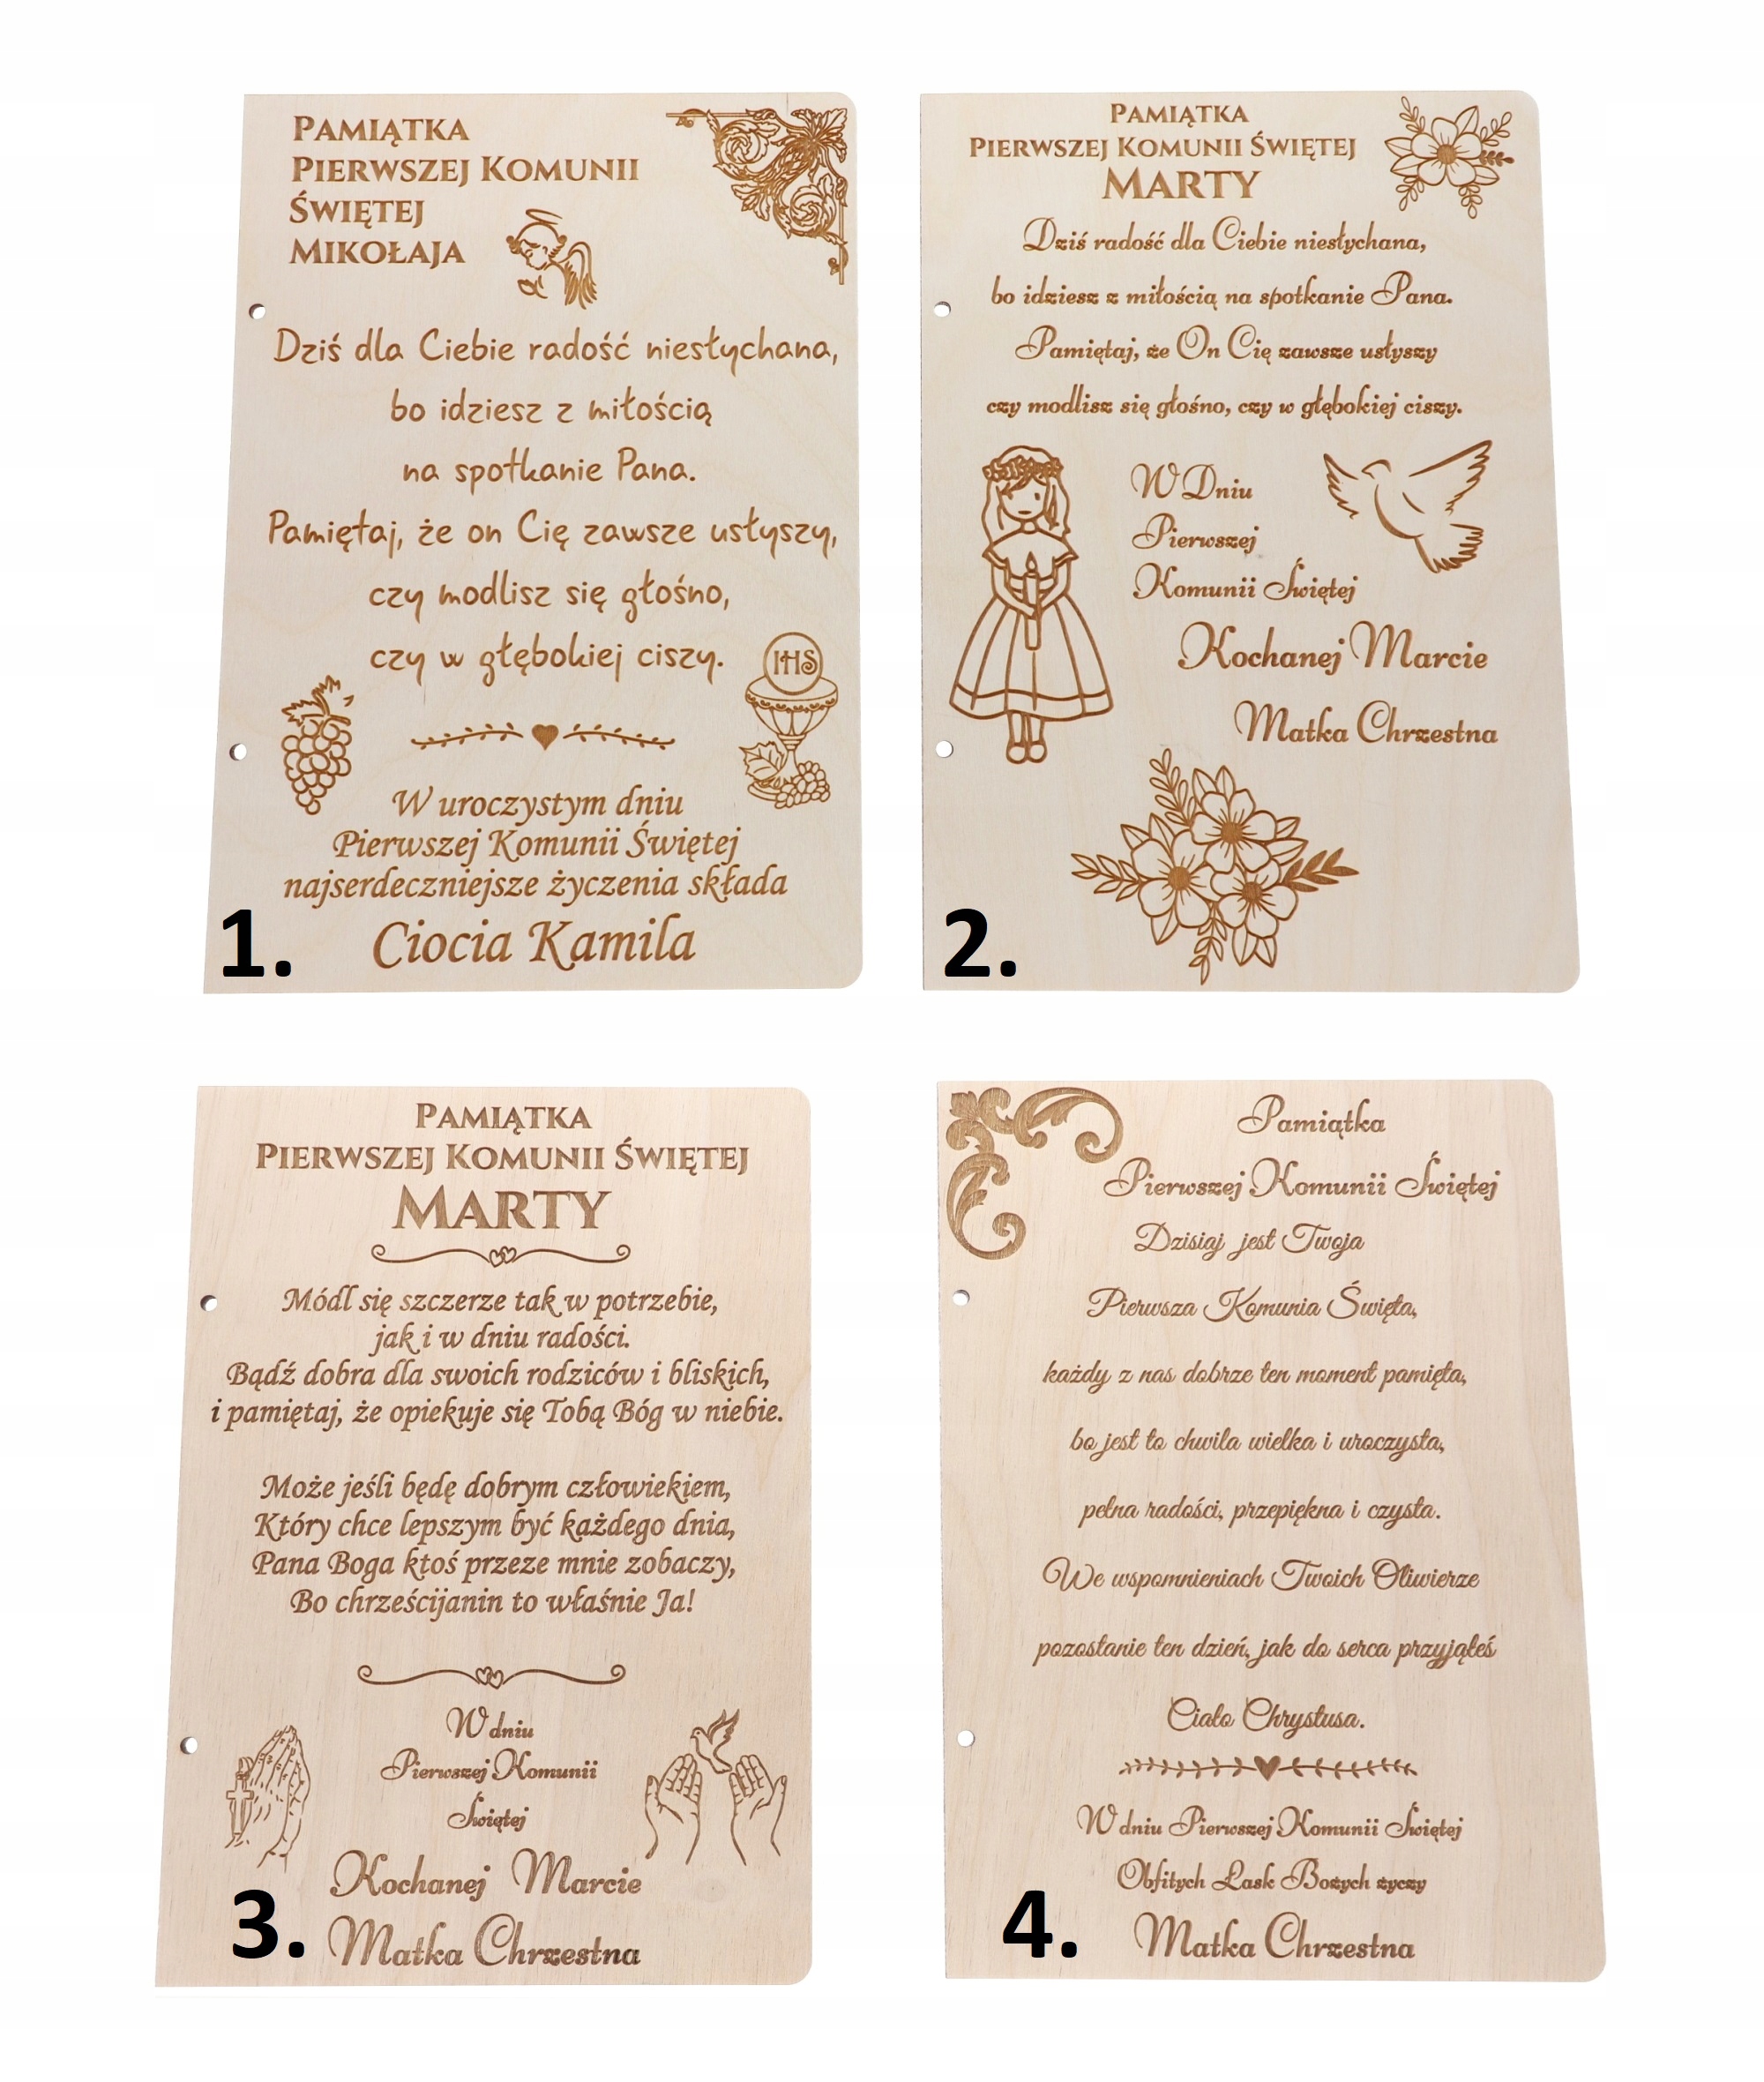 PAMIĄTKA
PIERWSZEJ KOMUNII
ŚWIĘTEJ
MIKOŁAJA
Dziś dla Ciebie radość niesłychana,
bo idziesz z miłością
na spotkanie Pana.
Pamiętaj, że on Cię zawsze usłyszy,
czy modlisz się głośno,
czy w głębokiej ciszy.
IHS
W uroczystym dniu
Pierwszej Komunii Świętej
najserdeczniejsze życzenia składa
Ciocia Kamila
1.
PAMIĄTKA
PIERWSZEJ KOMUNII ŚWIĘTEJ
MARTY
Dziś radość dla Ciebie niesłychana,
bo idziesz z miłością na spotkanie Pana.
Pamiętaj, że On Cię zawsze usłyszy
czy modlisz się głośno, czy w głębokiej ciszy.
W Dniu
Pierwszej
Komunii Świętej
Kochanej Marcie
Matka Chrzestna
2.
PAMIĄTKA
PIERWSZEJ KOMUNII ŚWIĘTEJ
MARTY
Módl się szczerze tak w potrzebie,
jak i w dniu radości.
Bądź dobra dla swoich rodziców i bliskich,
i pamiętaj, że opiekuje się Tobą Bóg w niebie.
Może jeśli będę dobrym człowiekiem,
Który chce lepszym być każdego dnia,
Pana Boga ktoś przeze mnie zobaczy,
Bo chrześcijanin to właśnie Ja!
W dniu
Pierwszej Komunii
Świętej
Kochanej Marcie
Matka Chrzestna
3.
Pamiątka
Pierwszej Komunii Świętej
Dzisiaj jest Twoja
Pierwsza Komunia Święta,
każdy z nas dobrze ten moment pamięta,
bo jest to chwila wielka i uroczysta,
pełna radości, przepiękna i czysta.
We wspomnieniach Twoich Oliwierze
pozostanie ten dzień, jak do serca przyjąłeś
Ciało Chrystusa.
W dniu Pierwszej Komunii Świętej
Obfitych Łask Bożych życzy
Matka Chrzestna
4.